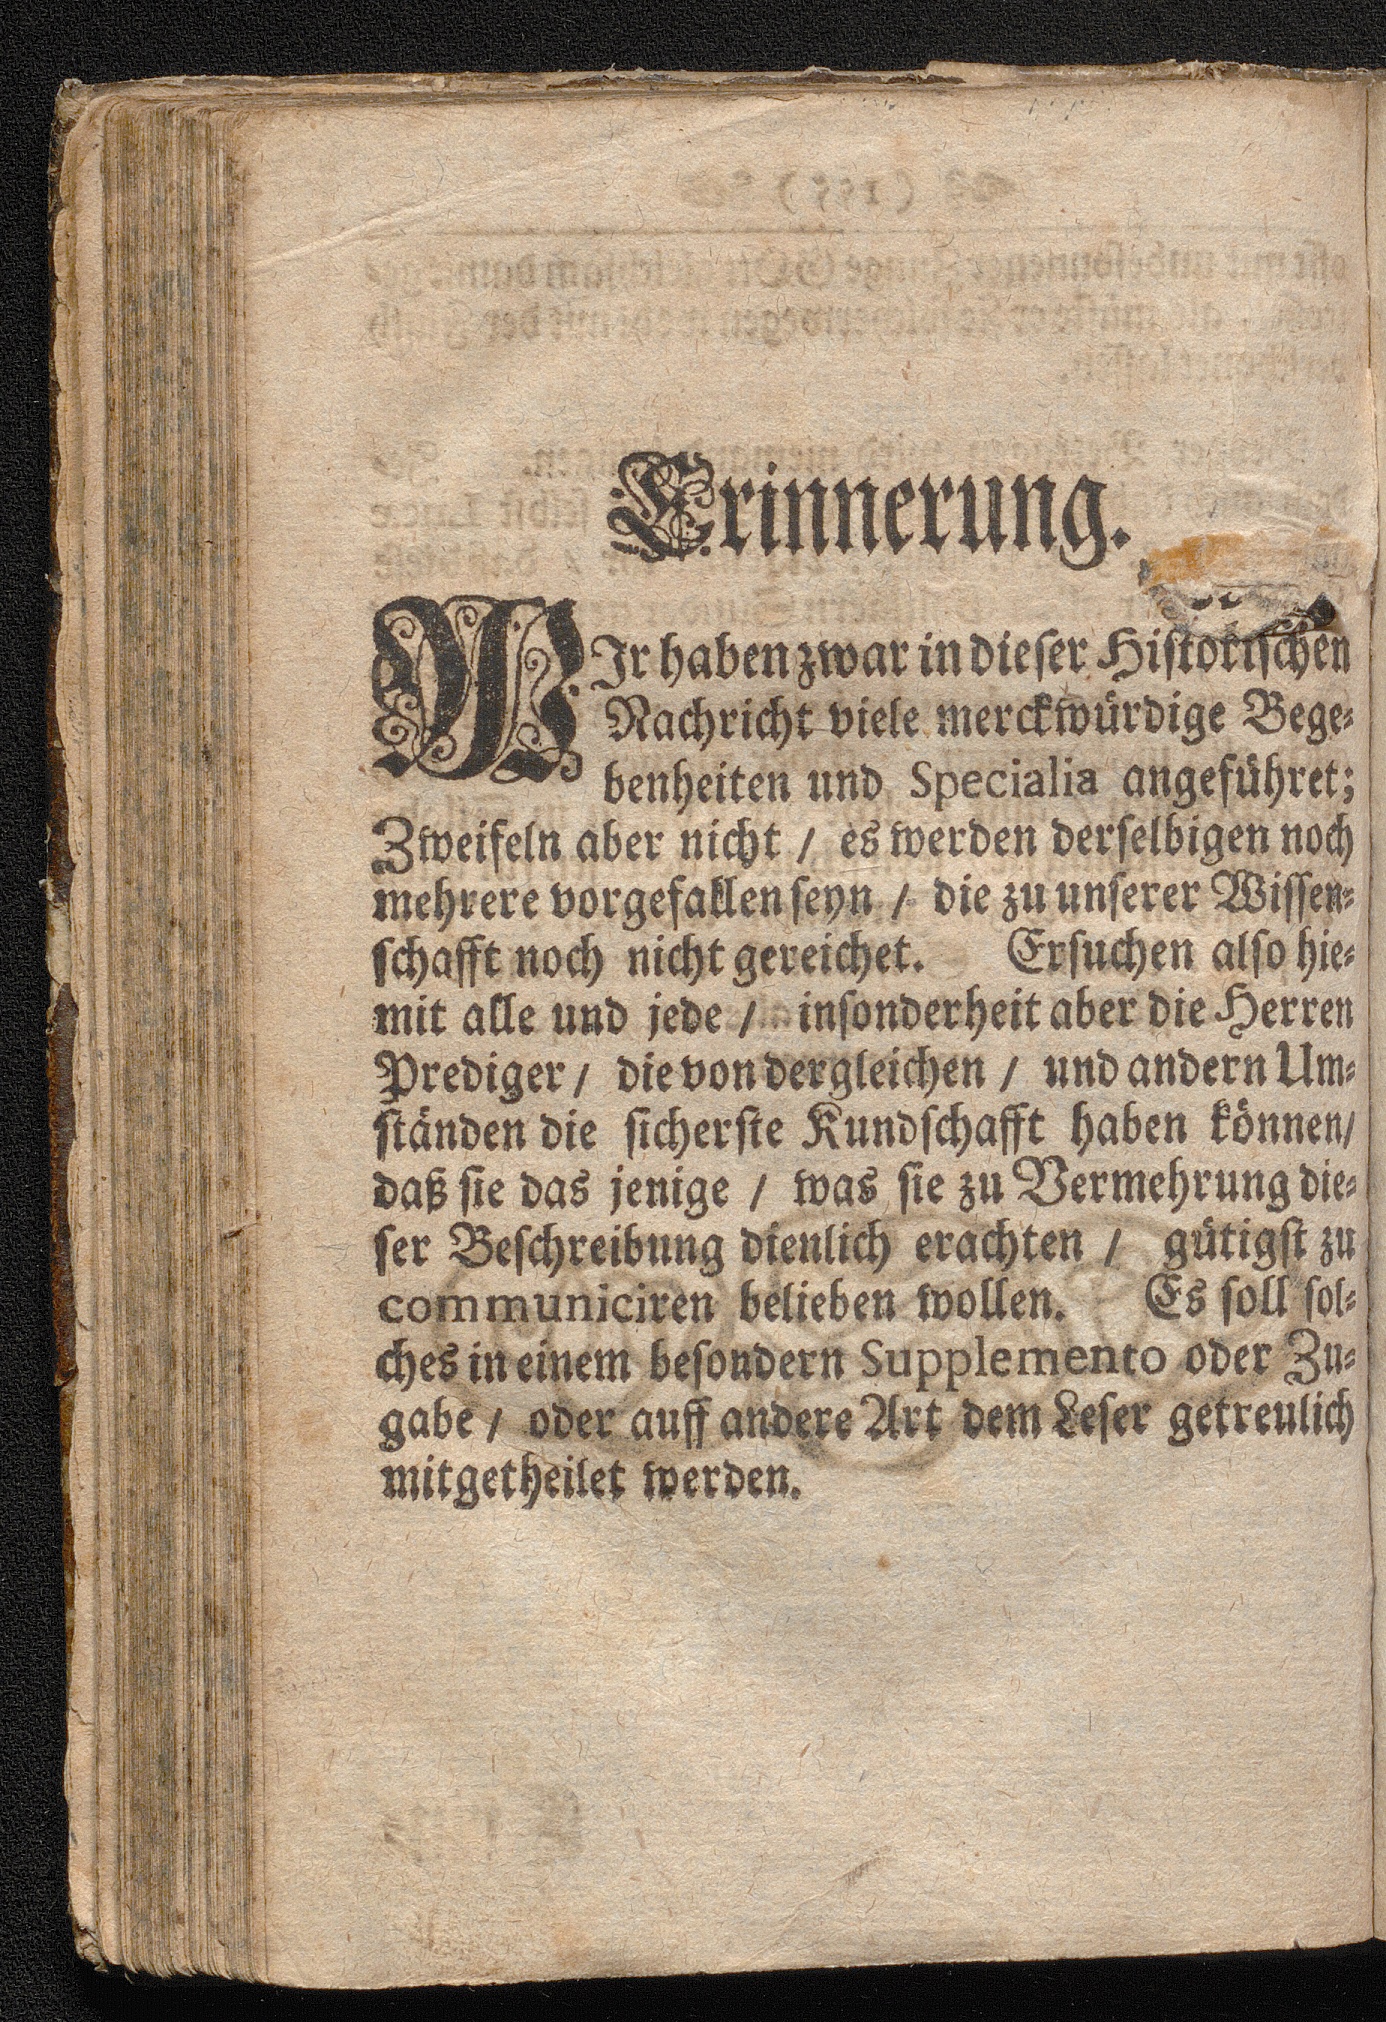 Erinnerung.
WIr haben zwar in dieser Historischen
Nachricht viele merckwürdige Bege-
benheiten und Specialia angeführet;
Zweifeln aber nicht / es werden derselbigen noch
mehrere vorgefallen seyn / die zu unserer Wissen-
schafft noch nicht gereichet. Ersuchen also hie-
mit alle und jede / insonderheit aber die Herren
Prediger / die von dergleichen / und andern Um-
ständen die sicherste Kundschafft haben können/
daß sie das jenige / was sie zu Vermehrung die-
ser Beschreibung dienlich erachten / gütigst zu
communiciren belieben wollen. Es soll sol-
ches in einem besondern Supplemento oder Zu-
gabe / oder auff andere Art dem Leser getreulich
mitgetheilet werden.